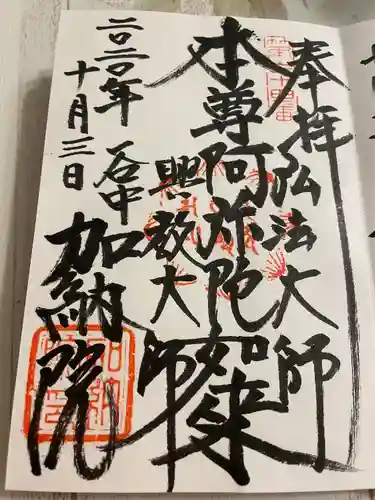 奉拝 弘法大師
本尊 阿弥陀如来
興教大師
二〇二〇年 谷中 加納院
十月三日